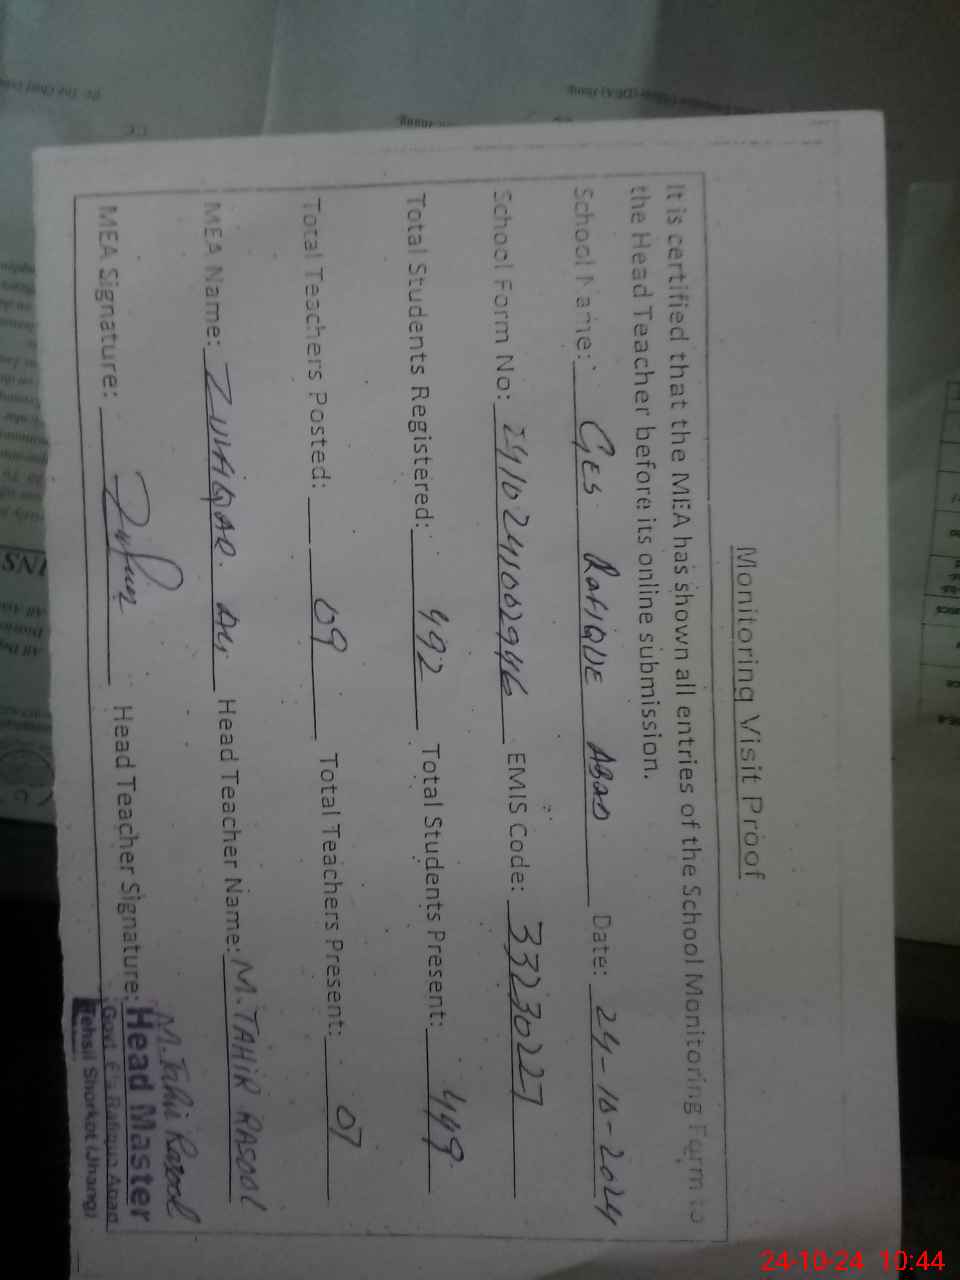 Monitoring Visit Proof
It is certified that the MEA has shown all entries of the School Monitoring Form to
the Head Teacher before its online submission.
School Name: GES RAFIQUE ABAD Date: 24-10-2024
School Form No: 2410241002946 EMIS Code: 33230227
Total Students Registered: 492 Total Students Present: 449
Total Teachers Posted: 09 Total Teachers Present: 07
MEA Name: ZULFIQAR ALI Head Teacher Name: M. TAHIR RASOOL
MEA Signature: Head Teacher Signature: M. Tahir Rasool
Head Master
Govt. E/S Rafique Abad
Tehsil Shorkot (Jhang)
24-10-24 10:44